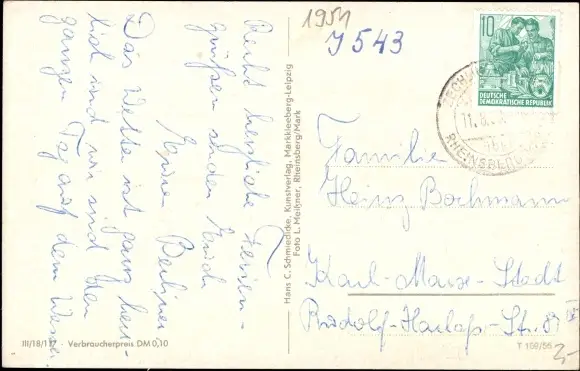 Recht herzliche Ferien-
grüßen senden Euch
Eure Berliner
Das Wetter ist ganz herr-
lich und wir sind den
ganzen Tag auf dem Wasser.
III/18/117 Verbraucherpreis DM 0,10
Hans C. Schmiedicke, Kunstverlag, Markkleeberg-Leipzig
Foto L. Meißner, Rheinsberg/Mark
1951
J 543
10
DEUTSCHE
DEMOKRATISCHE REPUBLIK
11.8.
RHEINSBERG
Familie
Heinz Bachmann
Karl-Marx-Stadt
Rudolf-Harlaß-Str. 81
T 169/55
3,-